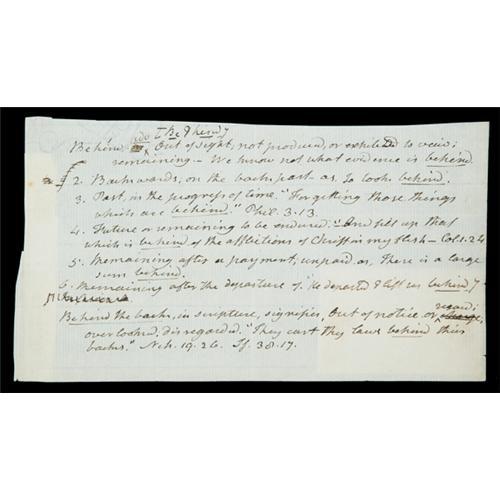 [Be & hind]
Behind, adv. Out of sight, not produced, or exhibited to view;
remaining – We know not what evidence is behind.
2. Backwards, on the back part – as, to look behind.
3. Past, in the progress of time. "Forgetting those things
which are behind." Phil. 3.13.
4. Future or remaining to be endured: "And fill up that
which is behind of the afflictions of Christ in my flesh – Col. 1.24
5. Remaining after a payment; unpaid. as, There is a large
sum behind.
6. Remaining after the departure of. He departed & left us behind
Behind the back, in scripture, signifies, Out of notice or regard;
overlooked, disregarded. "They cast thy laws behind their
backs." Neh. 19.26. Is. 38.17.